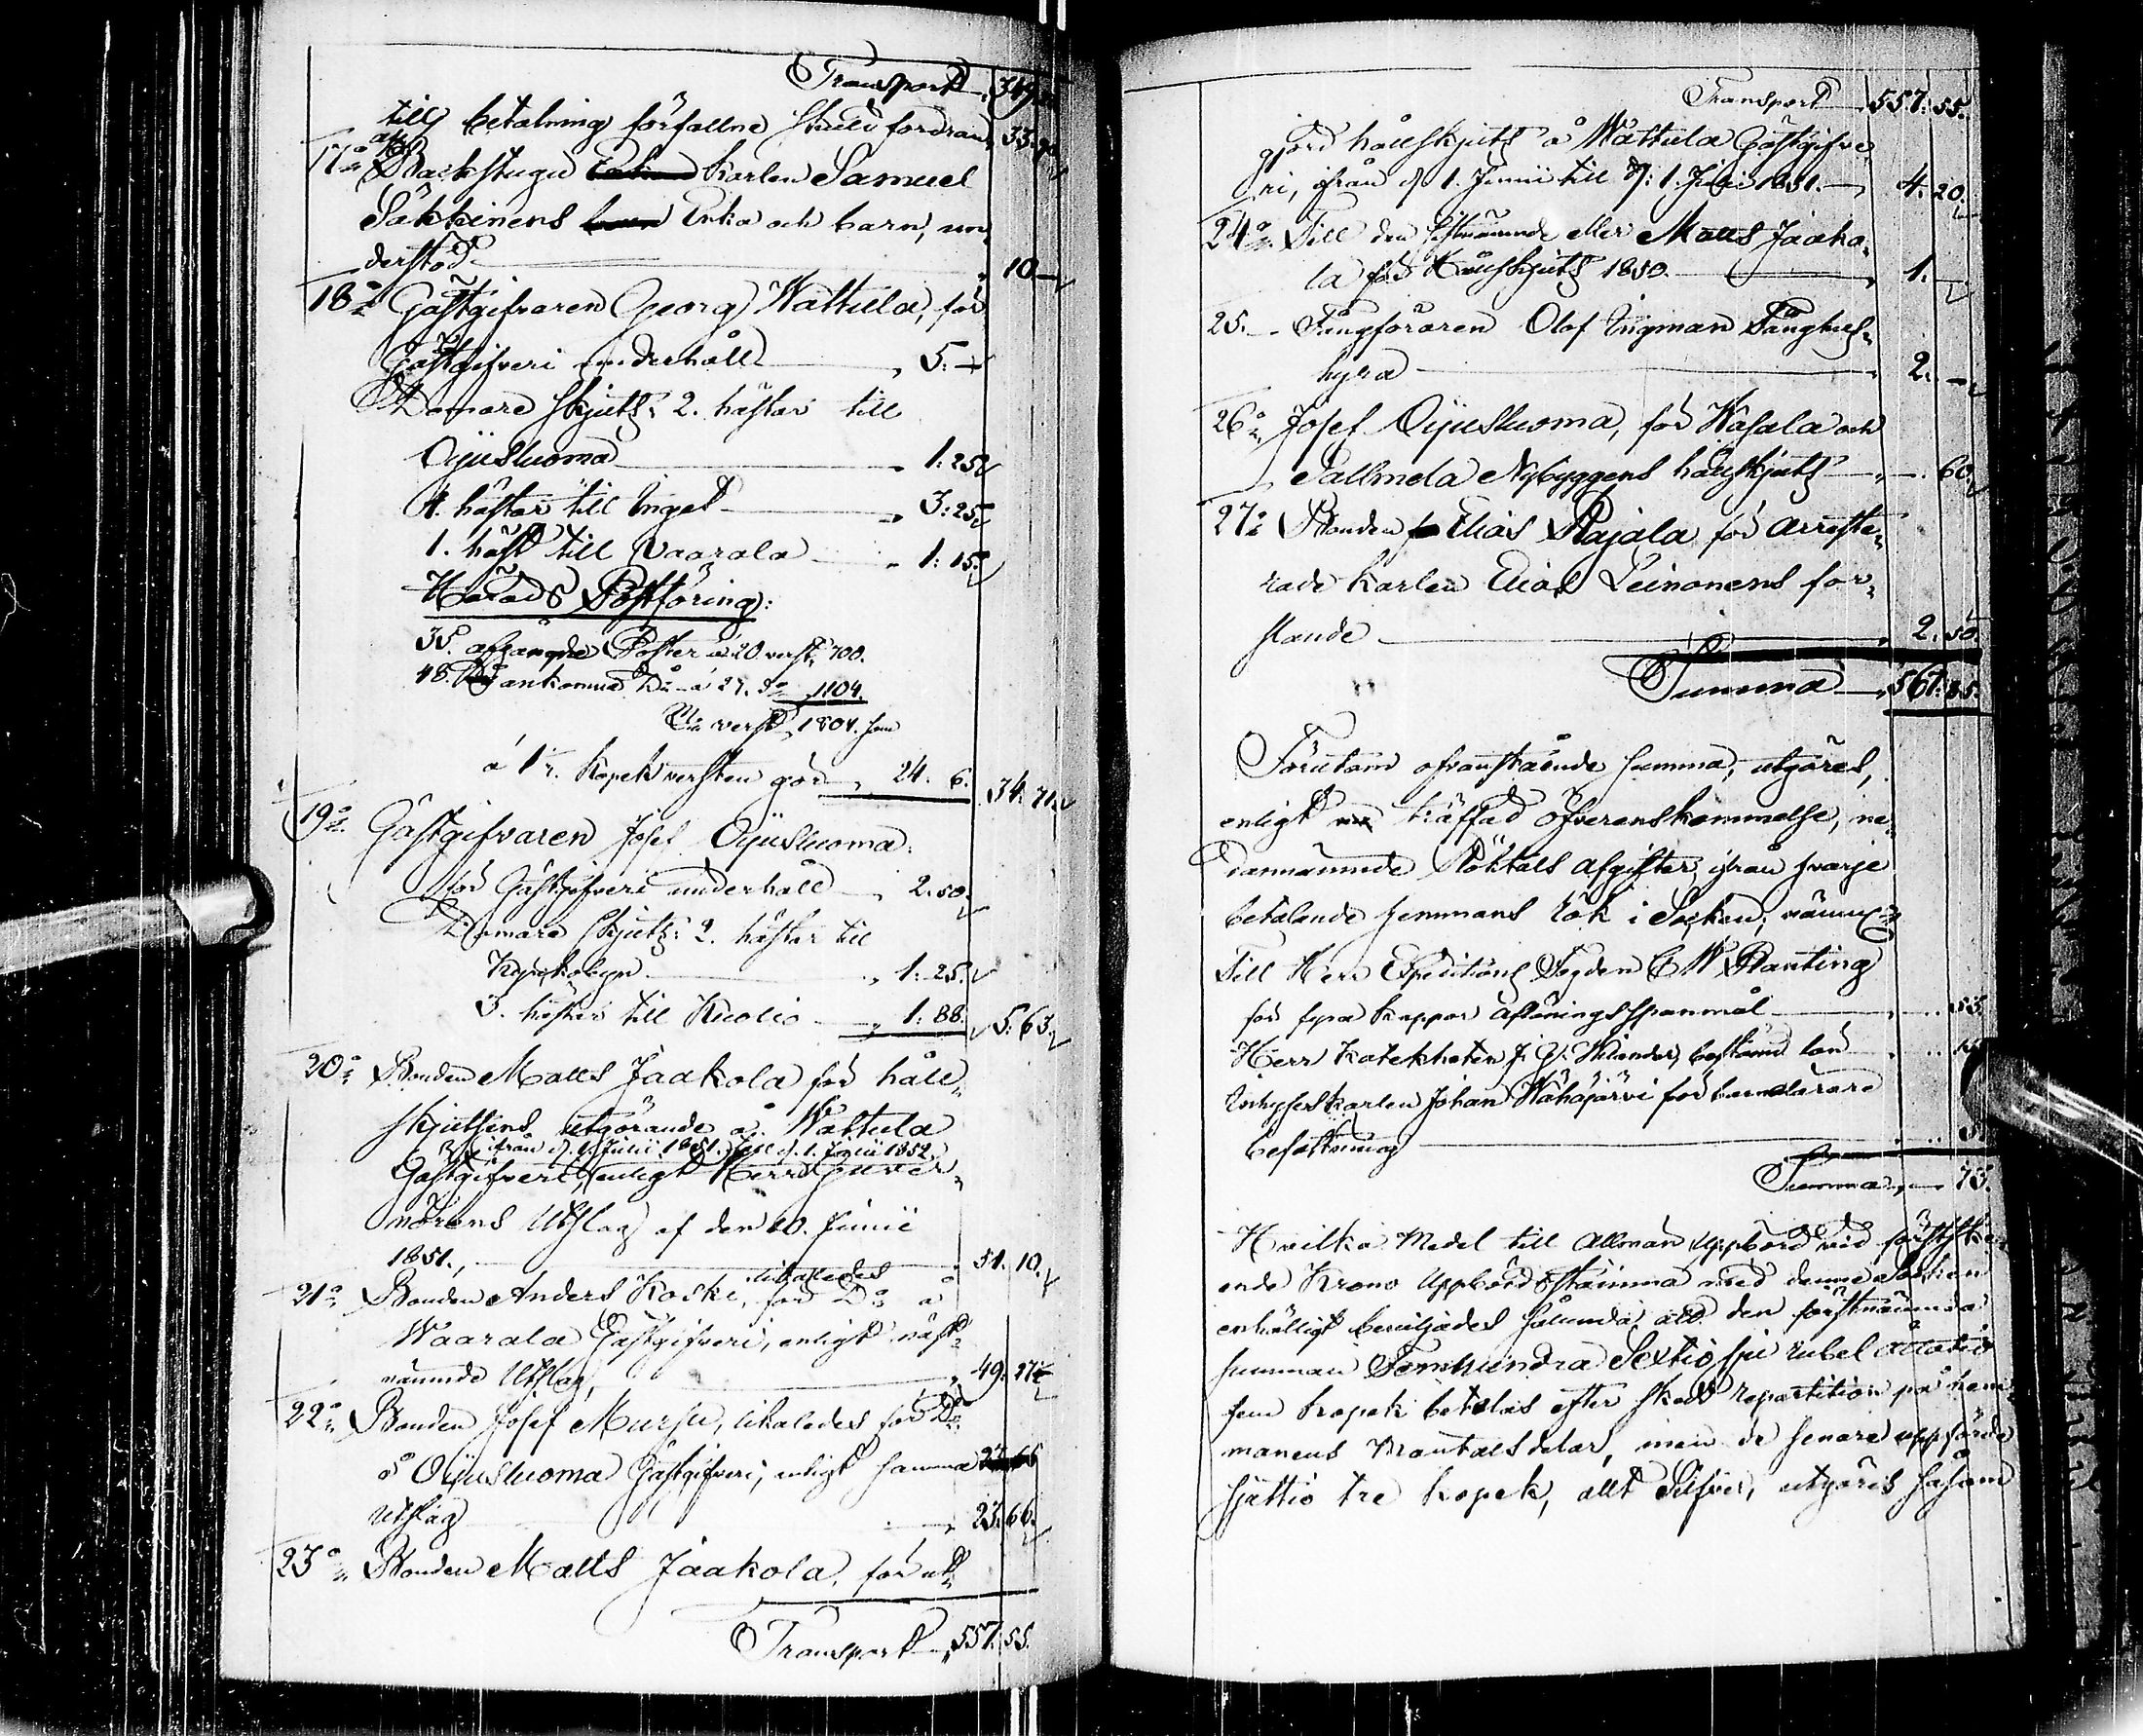 Transport 349.
till betalning förfallne skuld fordran 33.90
17:o Backstugu karlen Samuel
Säkkinens Enka och barn, un-
derstöd 10 —
18:o Gästgifvaren Georg Wattula, för
Gästgifveri underhåll 5. —
Domare skjuts: 2. hästar till
Oijusluoma 1: 25
4. hästar till Inget 3: 25
1. häst till Vaarala 1: 15
Härads Postföring:
35. afgångna Poster à 20 verst, 700.
48. ankomna D:o à 23. d:o 1104.
S:a verst, 1804. som
à 1 1/3. kopek versten gör 24. 6. 34: 71.
19:o Gästgifvaren Josef Oijusluoma:
för Gästgifveri underhåll 2. 50.
Domare skjuts: 2. hästar till
Kyrkobyn 1: 25.
3. hästar till Kuolio 1: 88. 5: 63.
20:o Bonden Matts Jaakola för håll-
skjutsens utgörande å Wattula
ifrån d. 1. Junii 1851. till d. 1. Junii 1852.
Gästgifveri, enligt Herr Guver-
nörens Utslag af den 10. Junii
1851., 51. 10.
21:o Bonden Anders Koski, likaledes för D:o å
Waarala Gästgifveri, enligt näst-
nämnde Utslag, 49. 17
22:o Bonden Josef Mursu, likaledes för D:o
å Oijusluoma Gästgifveri, enligt samma
Utslag 23. 66.
23:o Bonden Matts Jaakola, för ut-
Transport 557. 55.
Transport 557. 55.
gjord hållskjuts å Wattula Gästgifve-
ri, ifrån d. 1. Junii till d: 1. Juli 1851. 4. 20.
24:o Till den sistnämnde eller Matts Jaako-
la för Hållskjuts 1850. 1. —
25. Fångföraren Olof Ingman Fånghus-
hyra 2. —
26:o Josef Oijusluoma, för Wasala och
Pallmela Nybyggens hållskjuts 60.
27:o Bonden Elias Rajala för arreste-
rade karlen Elias Leinonens for-
slande 2. 50.
Summa 567: 85.
Förutom ofvanstående summa, utgöres,
enligt träffad öfverenskommelse, ne-
dannämnde Röktals afgifter, ifrån hvarje
betalande hemmans rök i Socken, nämnl:n
Till Herr Expeditions Fogden C W Planting
för fyra kappor aflöningsspanmål 53.
Herr Katekheten J. G. bestämd lön
Inhyseskarlen Johan Wähäjärvi för barnalärare
befattning
Summa 73.
Hvilka Medel till Allmän Uppbörd vid förstske-
ende Krono Uppbörds stämma med denne Socken
enhälligt beviljades sålunda, att den förstnämnda
summan Femhundra Sextio sju rubel åttatio
fem kopek betalas efter skedd repartition på hem-
manens Mantalsdelar, men de senare uppförde
sjuttio tre kopek, allt Silfver, utgöres såsom